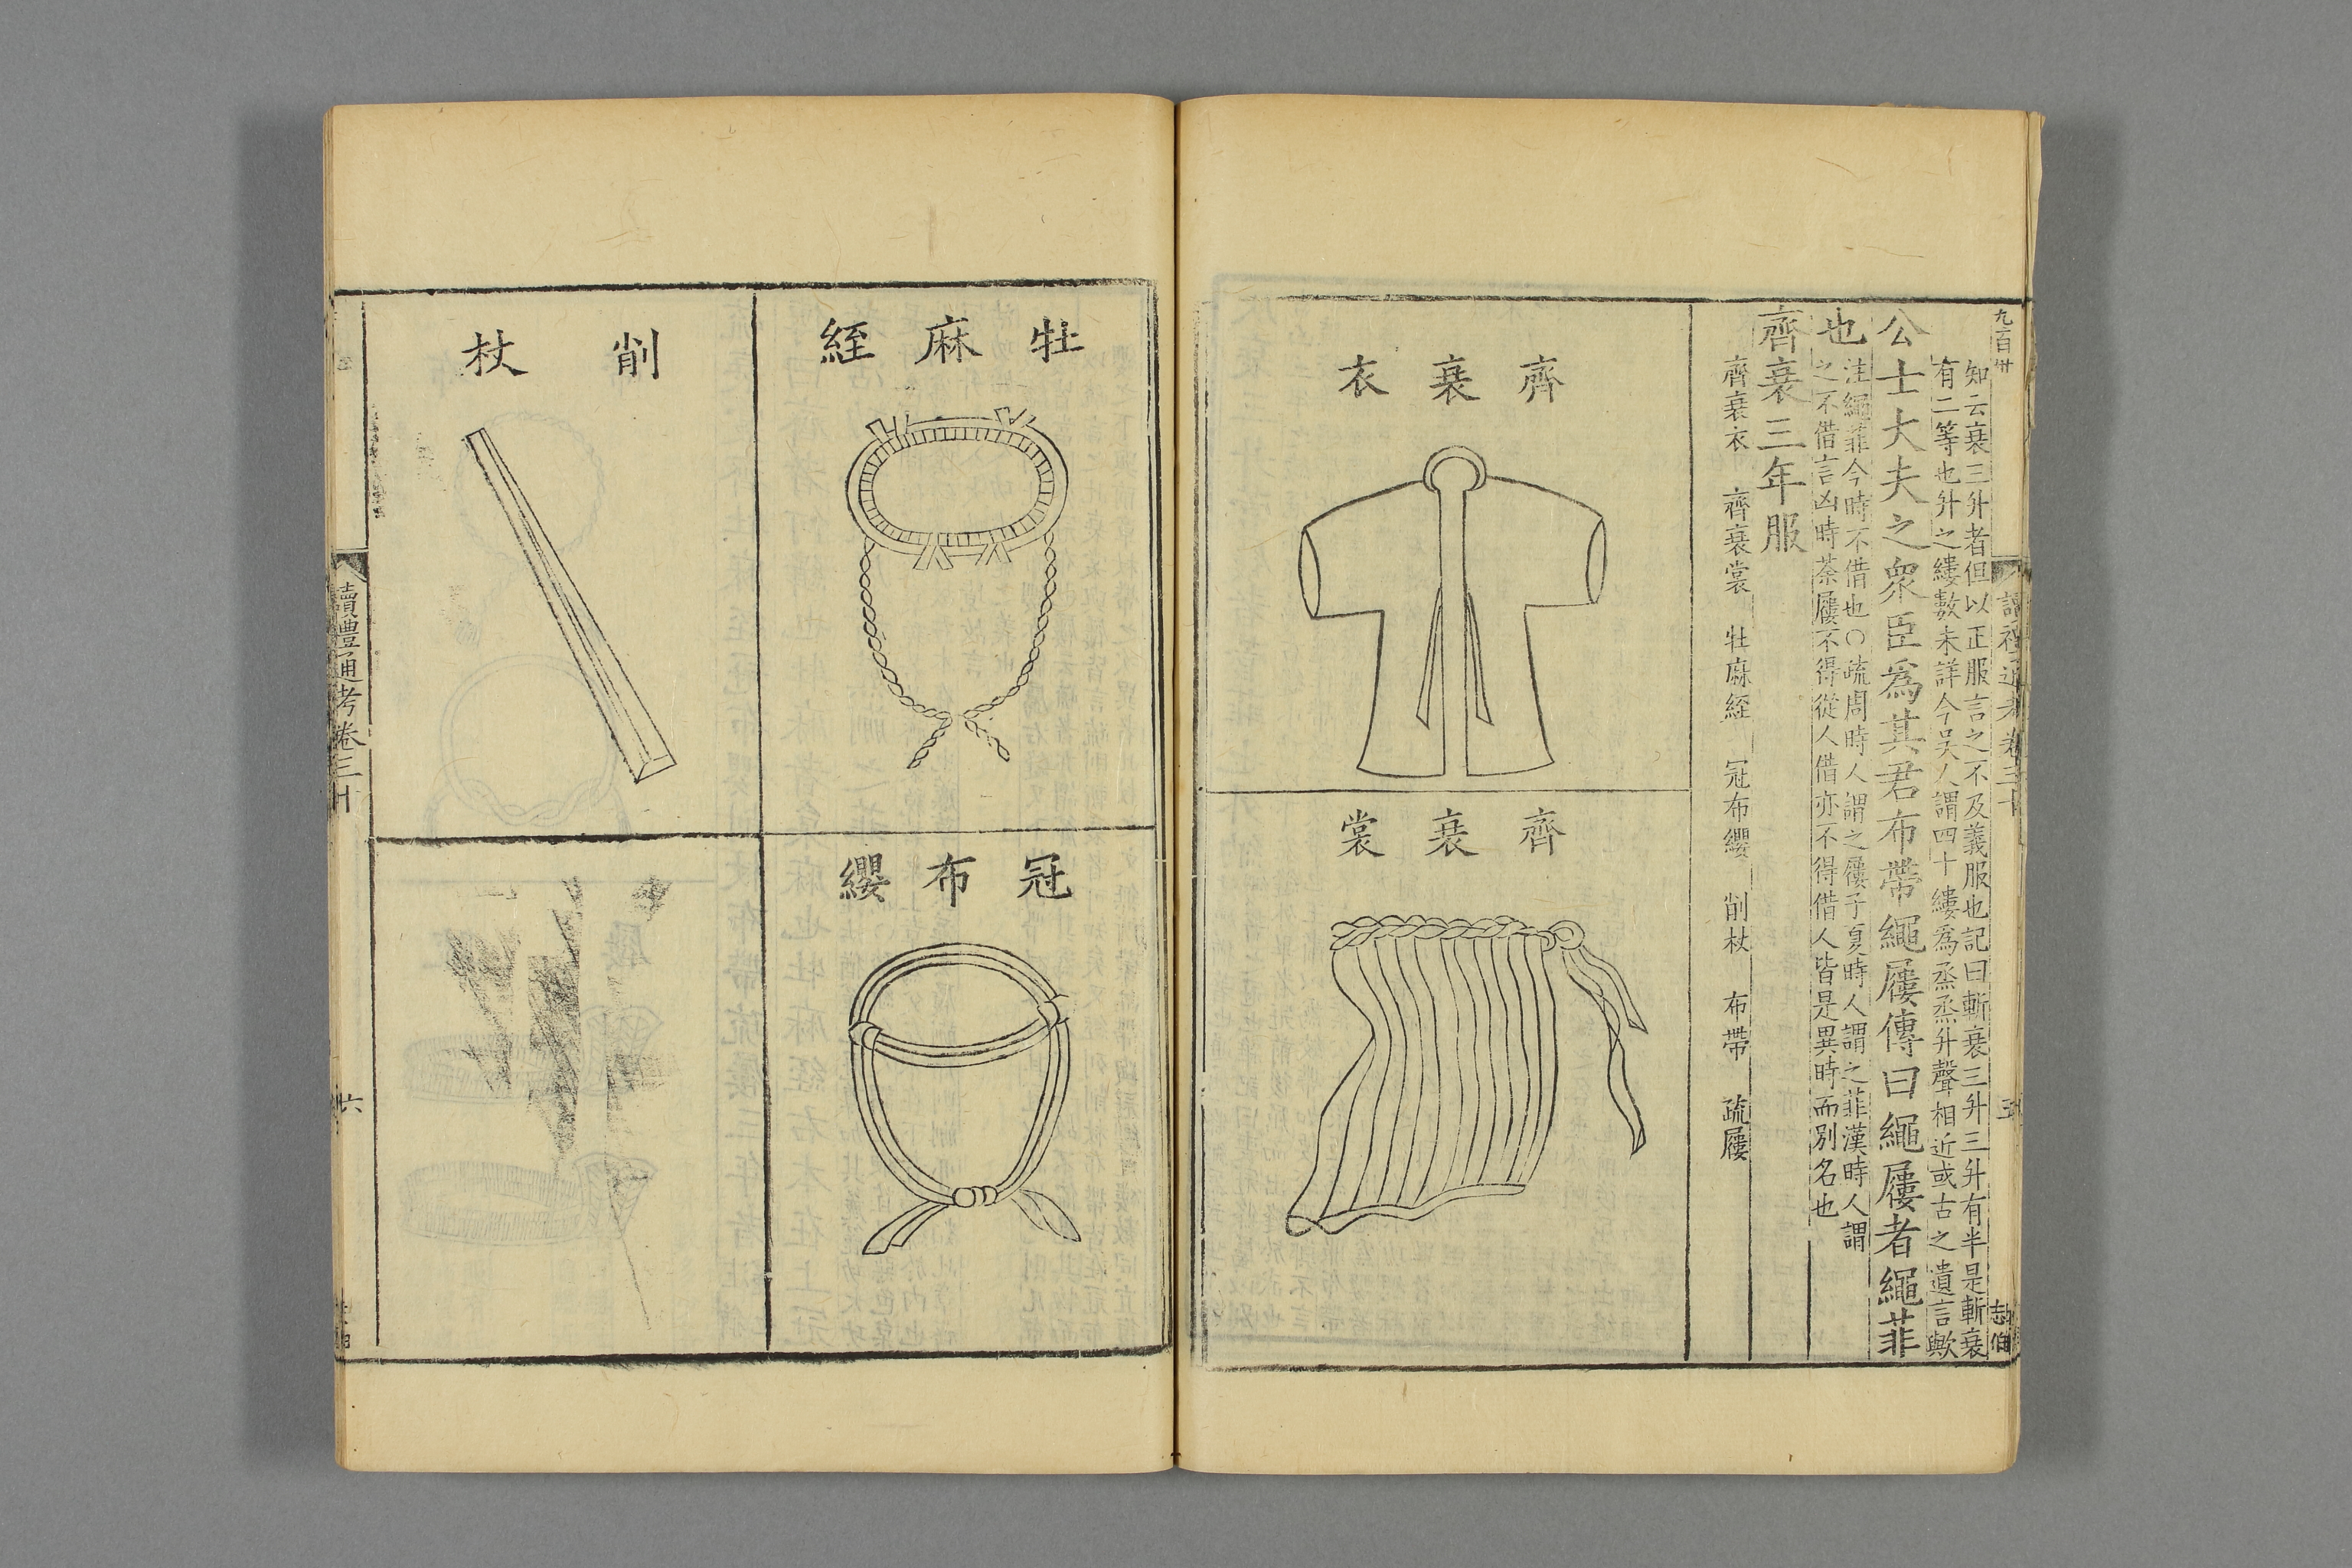 知云衰三升者但以正服言之不及義服也記曰斬衰三升三升有半是斬衰
有二等也升之縷數未詳今吳人謂四十縷爲烝烝升聲相近或古之遺言歟
公士大夫之衆臣爲其君布帶繩屨傳曰繩屨者繩菲
也
注繩菲今時不借也○疏周時人謂之屨子夏時人謂之菲漢時人謂
之不借言凶時荼屨不得從人借亦不得借人皆是異時而別名也
齊衰三年服
齊衰衣 齊衰裳 牡麻絰 冠布纓 削杖 布帶 疏屨
齊衰衣
齊衰裳
牡麻絰
冠布纓
削杖
讀禮通考卷三十
六